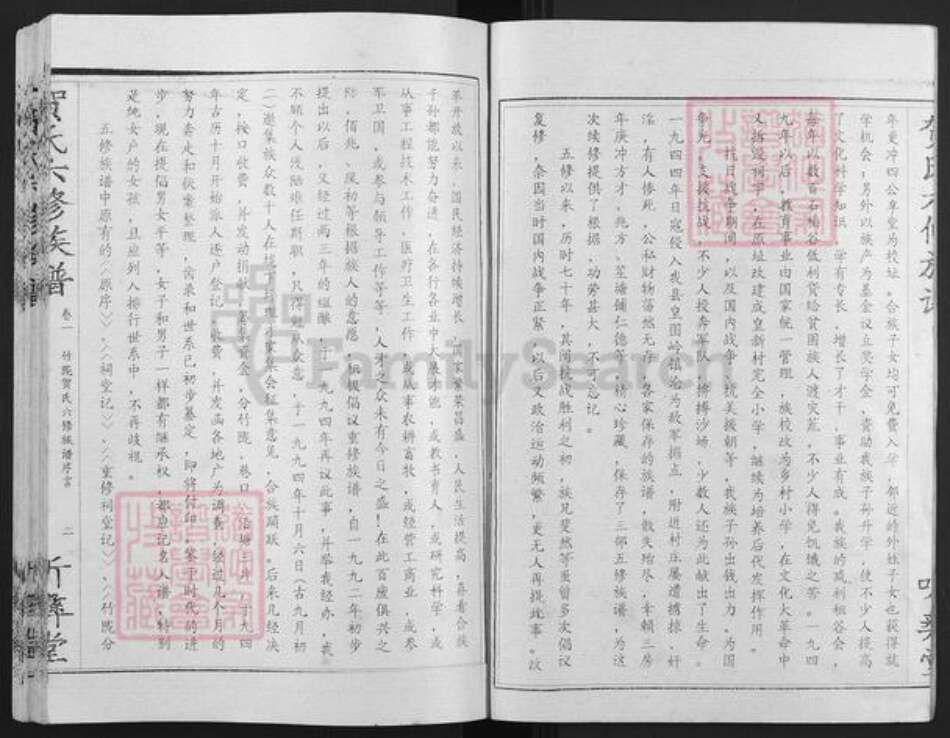 年更冲四公卓堂为校址。合族子女均可免费入学,邻近的外姓子女也获得就
学机会;另外以族产为基金设立奖学金,资助我族子孙升学,使不少人提高
了文化科学知识,学有专长,增长了才干,事业有成。我族的咸利租谷会,
每年以数百石稻谷低利贷给贫困族人渡灾荒,不少人得免饥饿之苦。一九四
九年以后,教育事业由国家统一管理,族校改为乡村小学,在文化大革命中
又拆毁祠宇,在原址改建成皇新村完全小学,继续为培养后代发挥作用。
抗日战争期间,以及国内战争、抗美援朝等,我族子孙出钱出力,为国
争光,支援抗战,不少人投奔军队,拚搏沙场,少数人还为此献出了生命。
一九四四年日寇侵入我县,皇图岭镇沦为敌军据点,附近村庄屡遭掳掠,奸
淫,有人惨死,公私财物荡然无存,各家保存的族谱,散失殆尽,幸赖三房
年庚冲方才、兆方、茔塘铺仁德等,精心珍藏,保存了三部五修族谱,为这
次续修提供了根据,功劳甚大,不可忘记。
五修以来,历时七十年,其间抗战胜利之初,族兄斐然等虽曾多次倡议
复修,奈因当时国内战争正紧,以后又政治运动频繁,更无人再提此事。改
贺氏六修族谱 卷一 竹陇贺氏六修族谱序言 二
革开放以来,国民经济持续增长,国家繁荣昌盛,人民生活提高,再看合族
千孙都能努力奋进,在各行各业中大展才能,或教书育人,或研究科学,或
从事工程技术工作、医疗卫生工作,或从事农耕畜牧,或经营工商业,或参
军卫国,或参与领导工作等等,人才之众未有今日之盛!在此百废俱兴之
际,佰兆、茂初等根据族人的意愿,积极倡议重修族谱,自一九九二年初步
提出以后,又经过两三年的酝酿,于一九九四年再议此事,并举我经办,我
不顾个人浅陋难任斯职,只得赴从众意,于一九九四年十月六日(古九月初
二)邀集族众数十人在株下均重小家集会征集意见,合族踊跃。后来几经决
定,按口收费,并发动捐献,筹集资金,分竹陇、巷口、茔塘三片,于九四
年古历十月开始派人逐户登记,收费,并发函各地广为调查,经过几个月的
努力奔走和伏案整理,齿录和世系已初步纂定,即将付印。鉴于时代的进
步,现在提倡男女平等,女子和男子一样都有继承权,都应记名入谱,特别
是纯女户的女孩,且应列入排行世系中,不再歧视。
五修族谱中原有的《原序》、《祠堂记》、《重修祠堂记》、《竹陇分